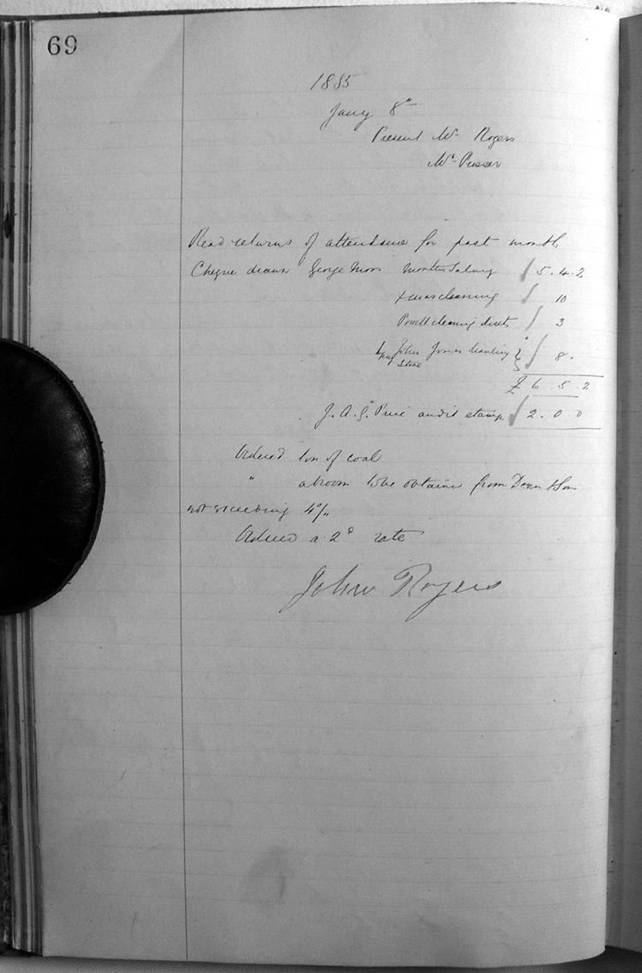 69
1885
Jany 8th
Present Mr Rogers
Mr Prosser
Read returns of attendance for past month
Cheque drawn George Moor Months Salary 5.4.2
Xmas cleaning 10
Powell cleaning 3
John Jones hauling 8.
£ 6.5.2
J. A. G. Price audit stamp 2.0.0
Ordered ton of coal
" a broom to be obtained from Dean & Son
not exceeding 4/-
Ordered a 2d rate
John Rogers